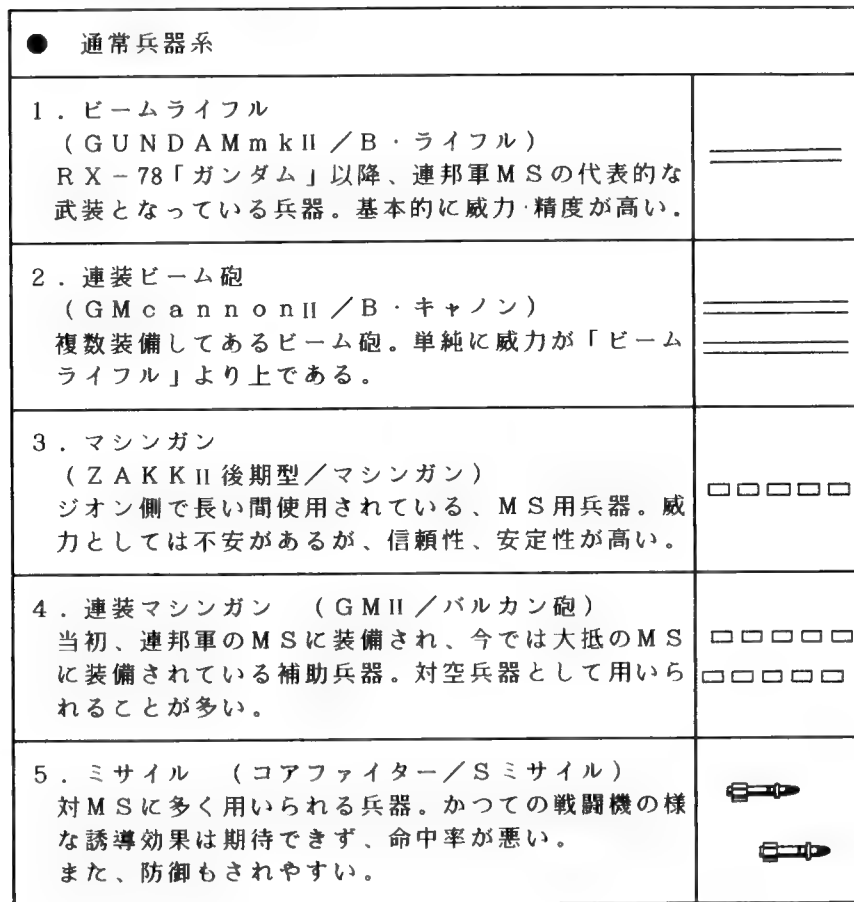 ● 通常兵器系
1．ビームライフル
（GUNDAMmkII／B・ライフル）
RX－78「ガンダム」以降、連邦軍MSの代表的な
武装となっている兵器。基本的に威力・精度が高い．
2．連装ビーム砲
（GMcannonII／B・キャノン）
複数装備してあるビーム砲。単純に威力が「ビーム
ライフル」より上である。
3．マシンガン
（ZAKKII後期型／マシンガン）
ジオン側で長い間使用されている、MS用兵器。威
力としては不安があるが、信頼性、安定性が高い。
4．連装マシンガン （GMII／バルカン砲）
当初、連邦軍のMSに装備され、今では大抵のMS
に装備されている補助兵器。対空兵器として用いら
れることが多い。
5．ミサイル （コアファイター／Sミサイル）
対MSに多く用いられる兵器。かつての戦闘機の様
な誘導効果は期待できず、命中率が悪い。
また、防御もされやすい。